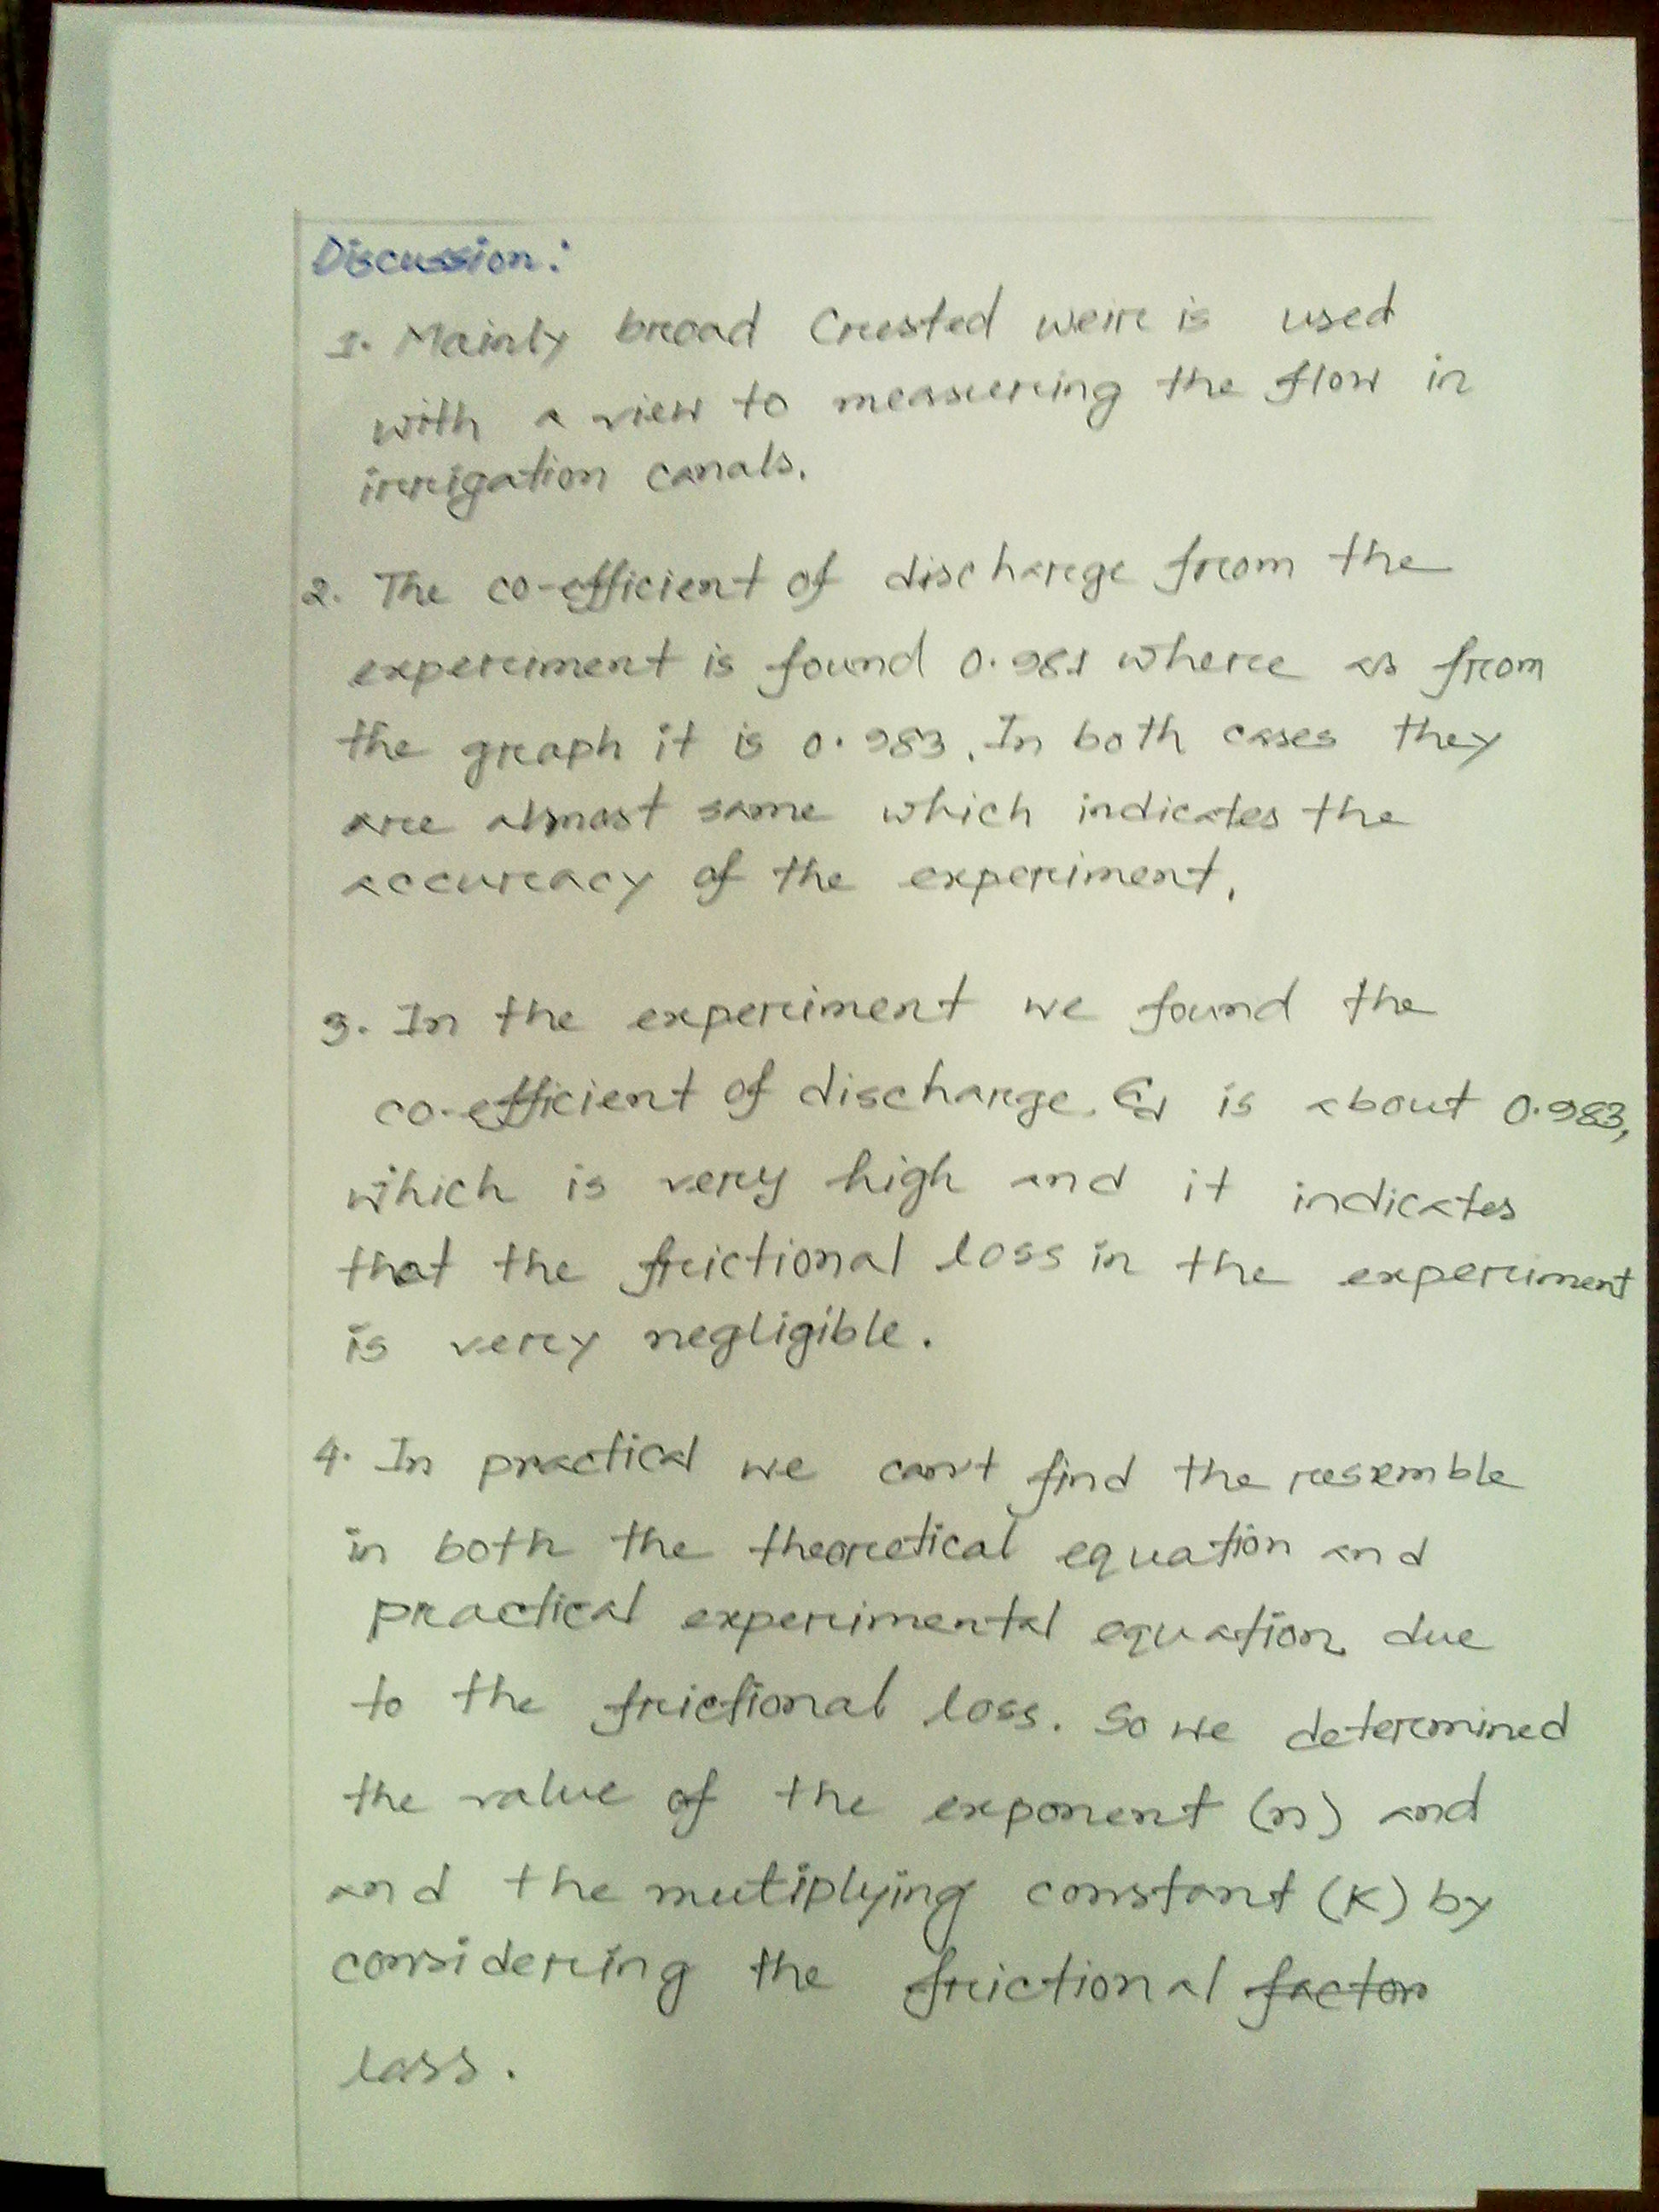 Discussion:
1. Mainly broad Crested weir is used
with a view to measuring the flow in
irrigation canals.
2. The co-efficient of discharge from the
experiment is found 0.981 where as from
the graph it is 0.983. In both cases they
are almost same which indicates the
accuracy of the experiment.
3. In the experiment we found the
co-efficient of discharge, Cd is about 0.983,
which is very high and it indicates
that the frictional loss in the experiment
is very negligible.
4. In practical we can't find the resemble
in both the theoretical equation and
practical experimental equation due
to the frictional loss. So we determined
the value of the exponent (n) and
and the mutiplying constant (K) by
considering the frictional factor
loss.